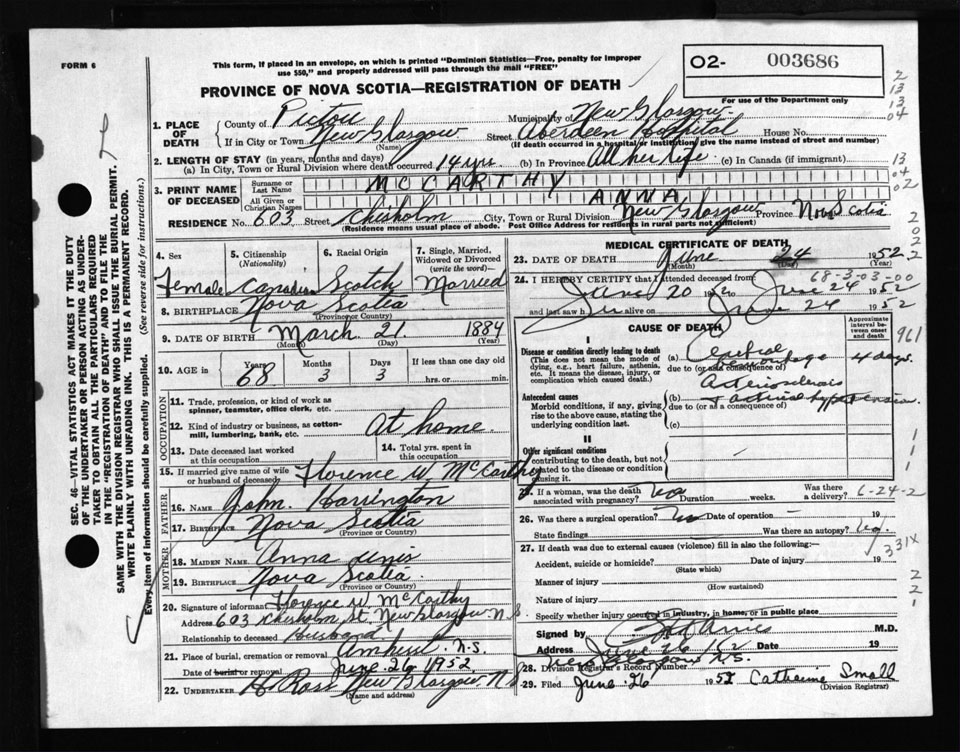 FORM 6
This form, if placed in an envelope, on which is printed "Dominion Statistics—Free, penalty for improper
use $50," and properly addressed will pass through the mail "FREE"
O2- 003686
PROVINCE OF NOVA SCOTIA—REGISTRATION OF DEATH
For use of the Department only
2
13
13
04
1. PLACE OF DEATH
County of Pictou Municipality of New Glasgow
If in City or Town New Glasgow (Name) Street Aberdeen Hospital House No.
(If death occurred in a hospital or institution, give the name instead of street and number)
2. LENGTH OF STAY (in years, months and days)
(a) In City, Town or Rural Division where death occurred 14 yrs. (b) In Province All her life. (c) In Canada (if immigrant)
13
04
02
3. PRINT NAME OF DECEASED
Surname or Last Name MCCARTHY
All Given or Christian Names ANNA
RESIDENCE No. 603 Street Chisholm City, Town or Rural Division New Glasgow Province Nova Scotia
(Residence means usual place of abode. Post Office Address for residents in rural parts not sufficient)
4. Sex
Female
5. Citizenship (Nationality)
Canadian
6. Racial Origin
Scotch
7. Single, Married, Widowed or Divorced (write the word)
Married
8. BIRTHPLACE Nova Scotia
(Province or Country)
9. DATE OF BIRTH March 21 1884
(Month) (Day) (Year)
10. AGE in Years 68 Months 3 Days 3 If less than one day old
hrs. or min.
OCCUPATION
11. Trade, profession, or kind of work as
spinner, teamster, office clerk, etc.
12. Kind of industry or business, as cotton-
mill, lumbering, bank, etc. At home.
13. Date deceased last worked
at this occupation
14. Total yrs. spent in
this occupation
15. If married give name of wife
or husband of deceased Florence W McCarthy
FATHER
16. NAME John Harrington
17. BIRTHPLACE Nova Scotia
(Province or Country)
MOTHER
18. MAIDEN NAME Anna
19. BIRTHPLACE Nova Scotia.
(Province or Country)
20. Signature of informant Florence W McCarthy
Address 603 Chisholm St. New Glasgow N.S.
Relationship to deceased Husband
21. Place of burial, cremation or removal Amherst N.S.
Date of burial or removal June 26 1952
22. UNDERTAKER H Ross New Glasgow N.S.
(Name and address)
MEDICAL CERTIFICATE OF DEATH
23. DATE OF DEATH June 24 1952
(Month) (Day) (Year)
68-3-03-00
24. I HEREBY CERTIFY that I attended deceased from
June 20 52 to June 24 1952
and last saw h er alive on June 24 1952
CAUSE OF DEATH
Approximate interval between onset and death
961
I
Disease or condition directly leading to death
(This does not mean the mode of dying, e.g., heart failure, asthenia, etc. It means the disease, injury, or complication which caused death.)
(a) Cerebral hemorrhage 4 days.
due to (or as a consequence of)
Antecedent causes
Morbid conditions, if any, giving rise to the above cause, stating the underlying condition last.
(b) Arteriosclerosis
+ arterial hypertension.
due to (or as a consequence of)
(c)
II
Other significant conditions
contributing to the death, but not related to the disease or condition causing it.
25. If a woman, was the death
associated with pregnancy? No Duration weeks. Was there a delivery?
6-24-2
26. Was there a surgical operation? No Date of operation 19
State findings Was there an autopsy? No.
27. If death was due to external causes (violence) fill in also the following:—
331X
Accident, suicide or homicide? Date of injury 19
(State which)
Manner of injury
(How sustained)
Nature of injury
Specify whether injury occurred in industry, in home, or in public place
Signed by M.D.
Address June 26/52 Date 19
New Glasgow N.S.
28. Division Registrar's Record Number
29. Filed June 26 1952 Catherine Small
(Division Registrar)
SEC. 46—VITAL STATISTICS ACT MAKES IT THE DUTY
OF THE UNDERTAKER OR PERSON ACTING AS UNDER-
TAKER TO OBTAIN ALL THE PARTICULARS REQUIRED
IN THE "REGISTRATION OF DEATH" AND TO FILE THE
SAME WITH THE DIVISION REGISTRAR WHO SHALL ISSUE THE BURIAL PERMIT.
WRITE PLAINLY WITH UNFADING INK. THIS IS A PERMANENT RECORD.
Every item of information should be carefully supplied. (See reverse side for instructions.)